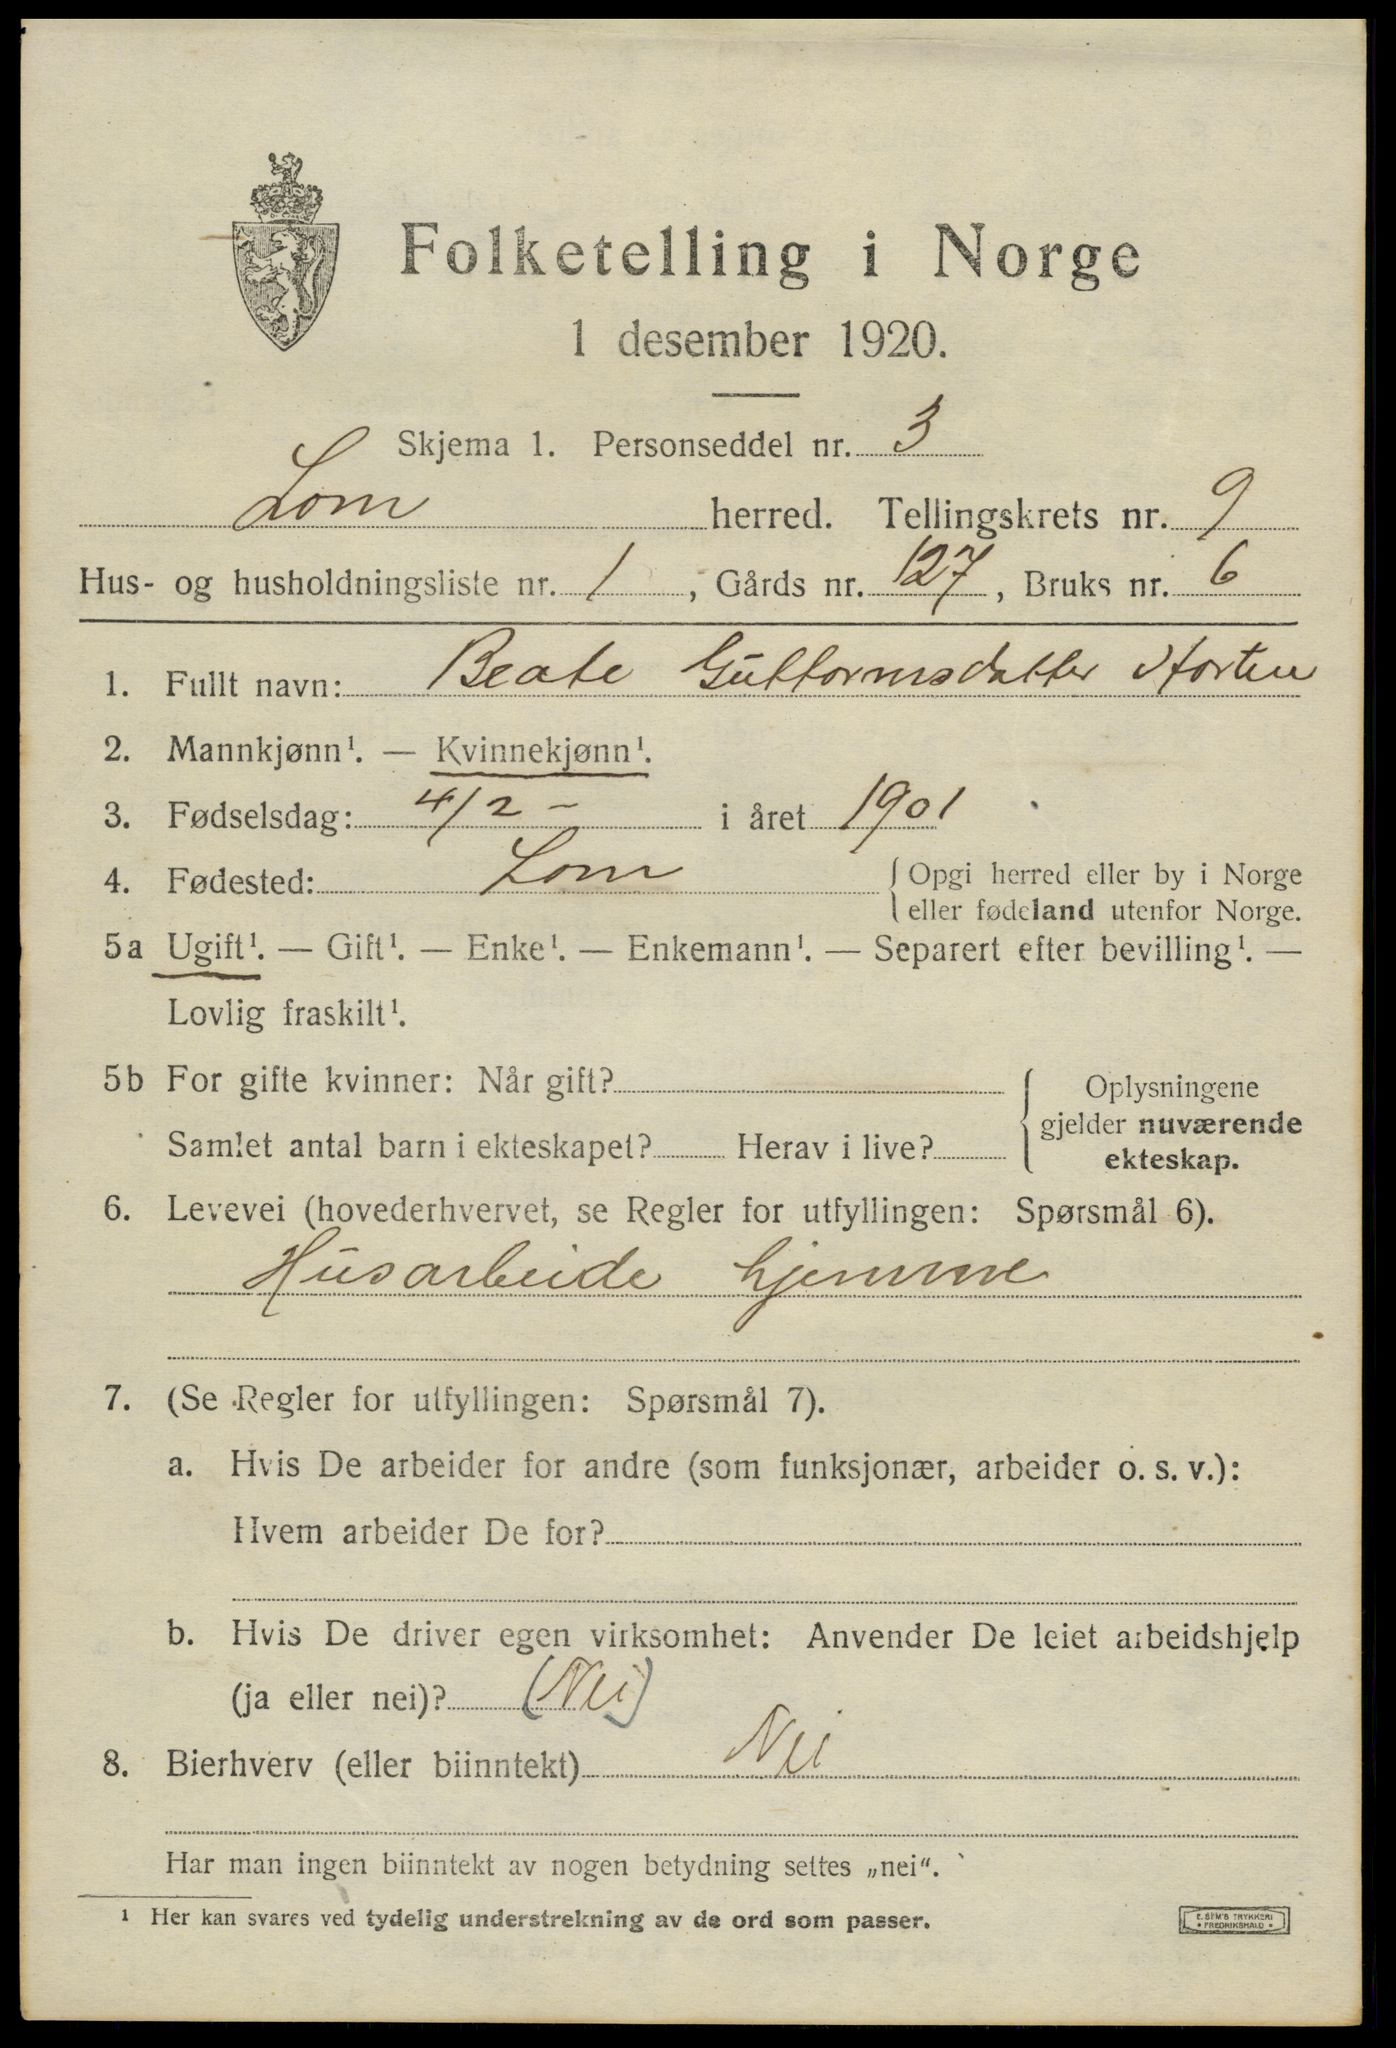 Folketelling i Norge
1 desember 1920.
Skjema 1. Personseddel nr. 3
Lom herred. Tellingskrets nr. 9
Hus- og husholdningsliste nr. 1, Gårds nr. 127, Bruks nr. 6
1. Fullt navn: Beate Guttormsdatter
2. Mannkjønn¹. — Kvinnekjønn¹.
3. Fødselsdag: 4/2 - i året 1901
4. Fødested: Lom { Opgi herred eller by i Norge
eller fødeland utenfor Norge.
5a Ugift¹. — Gift¹. — Enke¹. — Enkemann¹. — Separert efter bevilling¹. —
Lovlig fraskilt¹.
5b For gifte kvinner: Når gift?
Samlet antal barn i ekteskapet? Herav i live?
{ Oplysningene
gjelder nuværende
ekteskap.
6. Levevei (hovederhvervet, se Regler for utfyllingen: Spørsmål 6).
Husarbeide hjemme
7. (Se Regler for utfyllingen: Spørsmål 7).
a. Hvis De arbeider for andre (som funksjonær, arbeider o. s. v.):
Hvem arbeider De for?
b. Hvis De driver egen virksomhet: Anvender De leiet arbeidshjelp
(ja eller nei)? (Nei)
8. Bierhverv (eller biinntekt) Nei
Har man ingen biinntekt av nogen betydning settes „nei“.
¹ Her kan svares ved tydelig understrekning av de ord som passer.
E. SEM'S TRYKKERI
• FREDRIKSHALD •